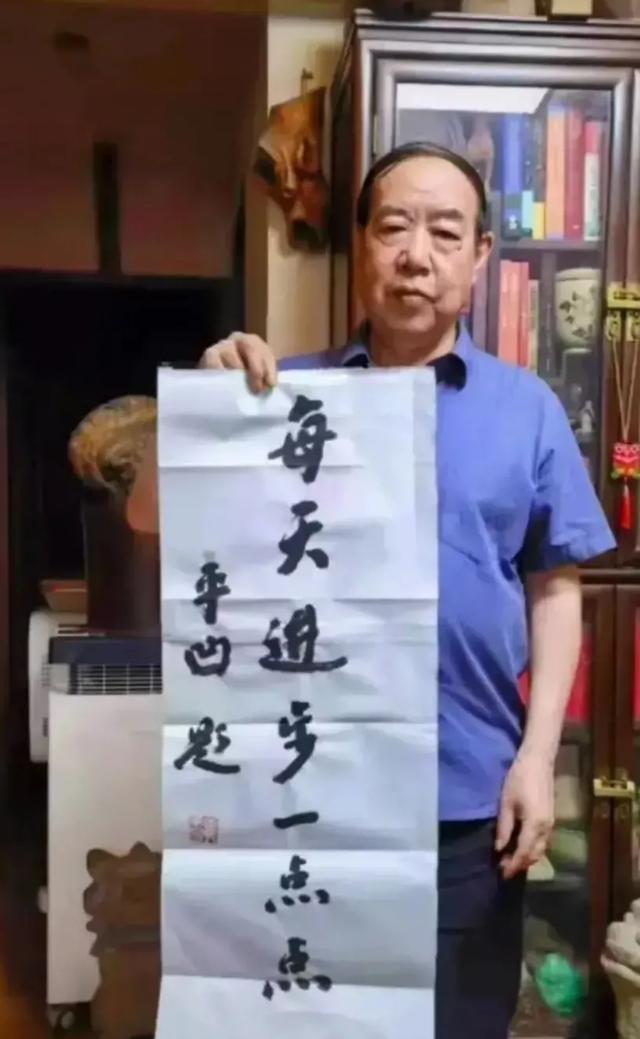 每天进步一点点
平凹题